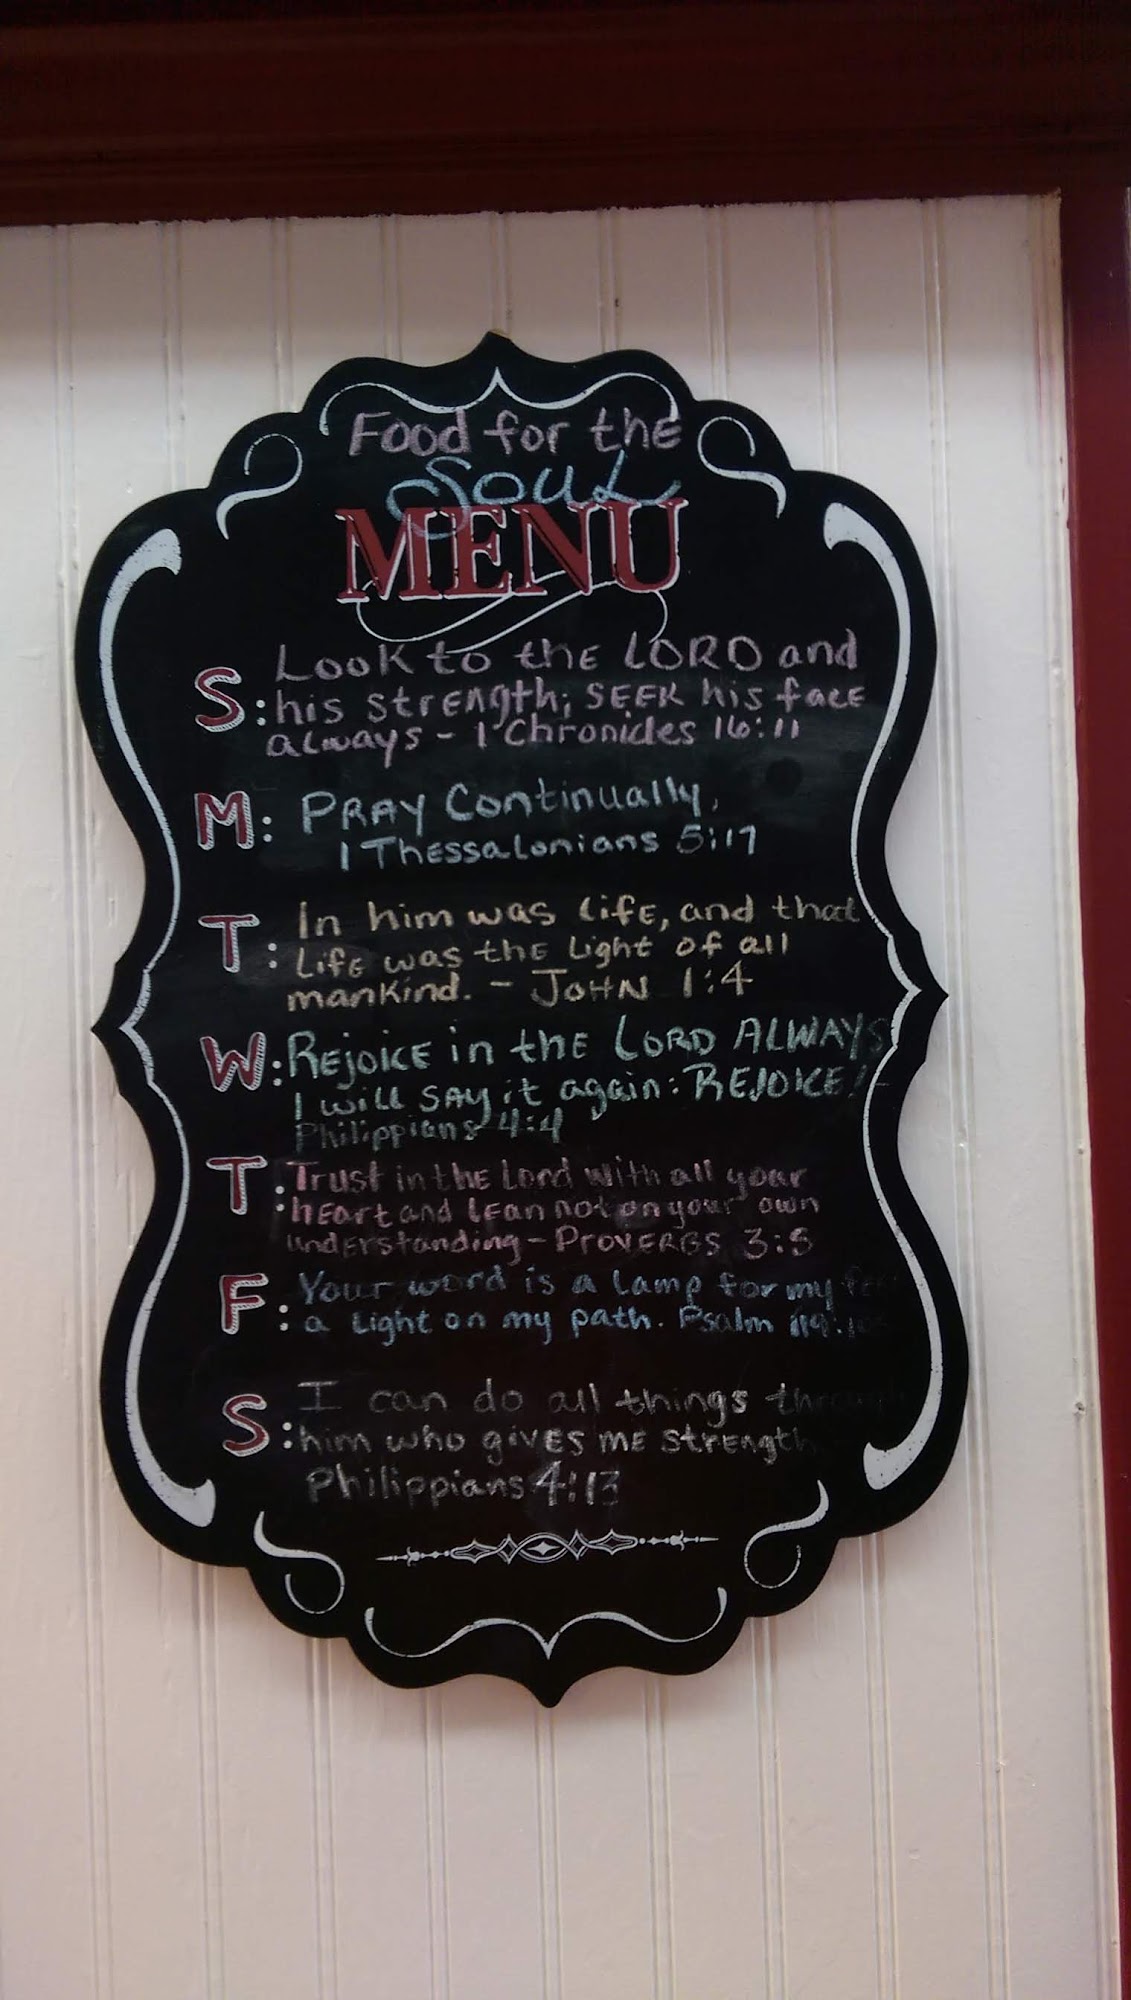 Food for the
Soul
MENU
S: Look to the LORD and
his strength; SEEK his face
always - 1 Chronicles 16:11
M: PRAY Continually,
1 Thessalonians 5:17
T: In him was life, and that
Life was the Light of all
mankind. - JOHN 1:4
W: Rejoice in the LORD ALWAYS
I will SAY it again: REJOICE! -
Philippians 4:4
T: Trust in the Lord with all your
heart and lean not on your own
understanding - PROVERBS 3:5
F: Your word is a lamp for my
a Light on my path. Psalm
S: I can do all things through
him who gives me strength
Philippians 4:13